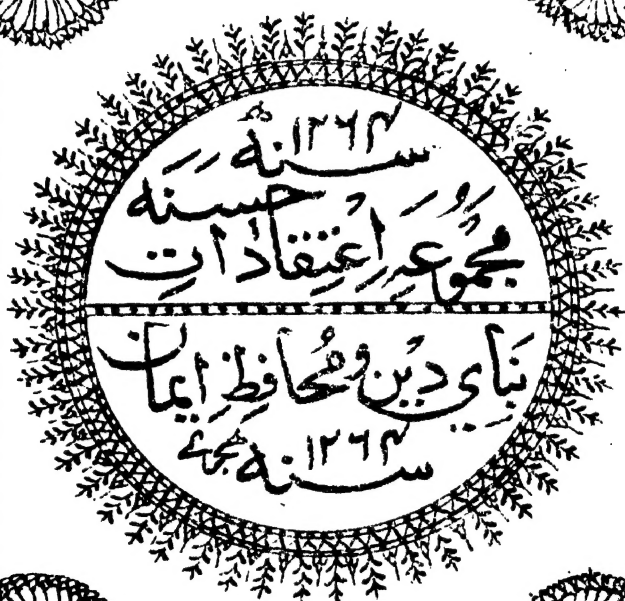 سنه ۱۲۶۴ ھ
مَجْمُوعَہِ اِعْتِقَادَاتِ حَسَنَه
بَنَايِ دِيْن وَ مُحَافِظِ اِيْمَان
سنه ۱۲۶۴ هجرے